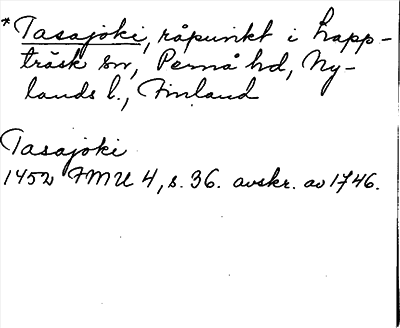 *Tasajoki, råpunkt i Lapp-
träsk sn, Pernå hd, Ny-
lands l., Finland
Tasajoki
1452 FMU 4, s. 36. avskr. av 1746.